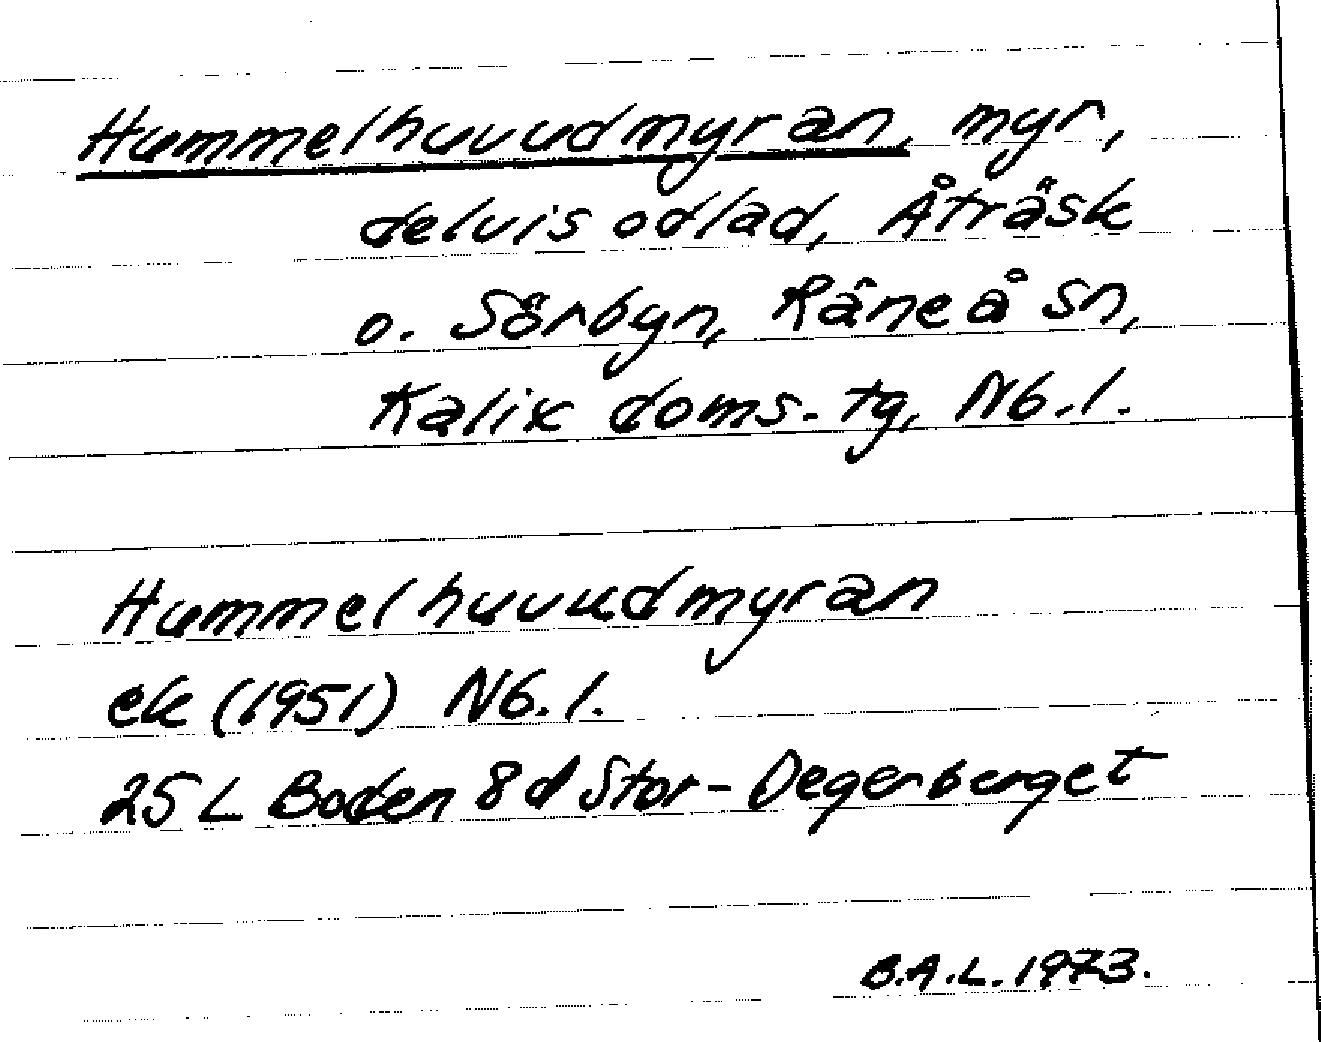 Hummelhuvudmyran, myr,
delvis odlad, Åträsk
o. Sörbyn, Råneå sn,
Kalix doms.tg, Nb.l.
Hummelhuvudmyran
ek (1951) Nb.l.
25 L Boden 8d Stor-Degerberget
B.A.L. 1973.